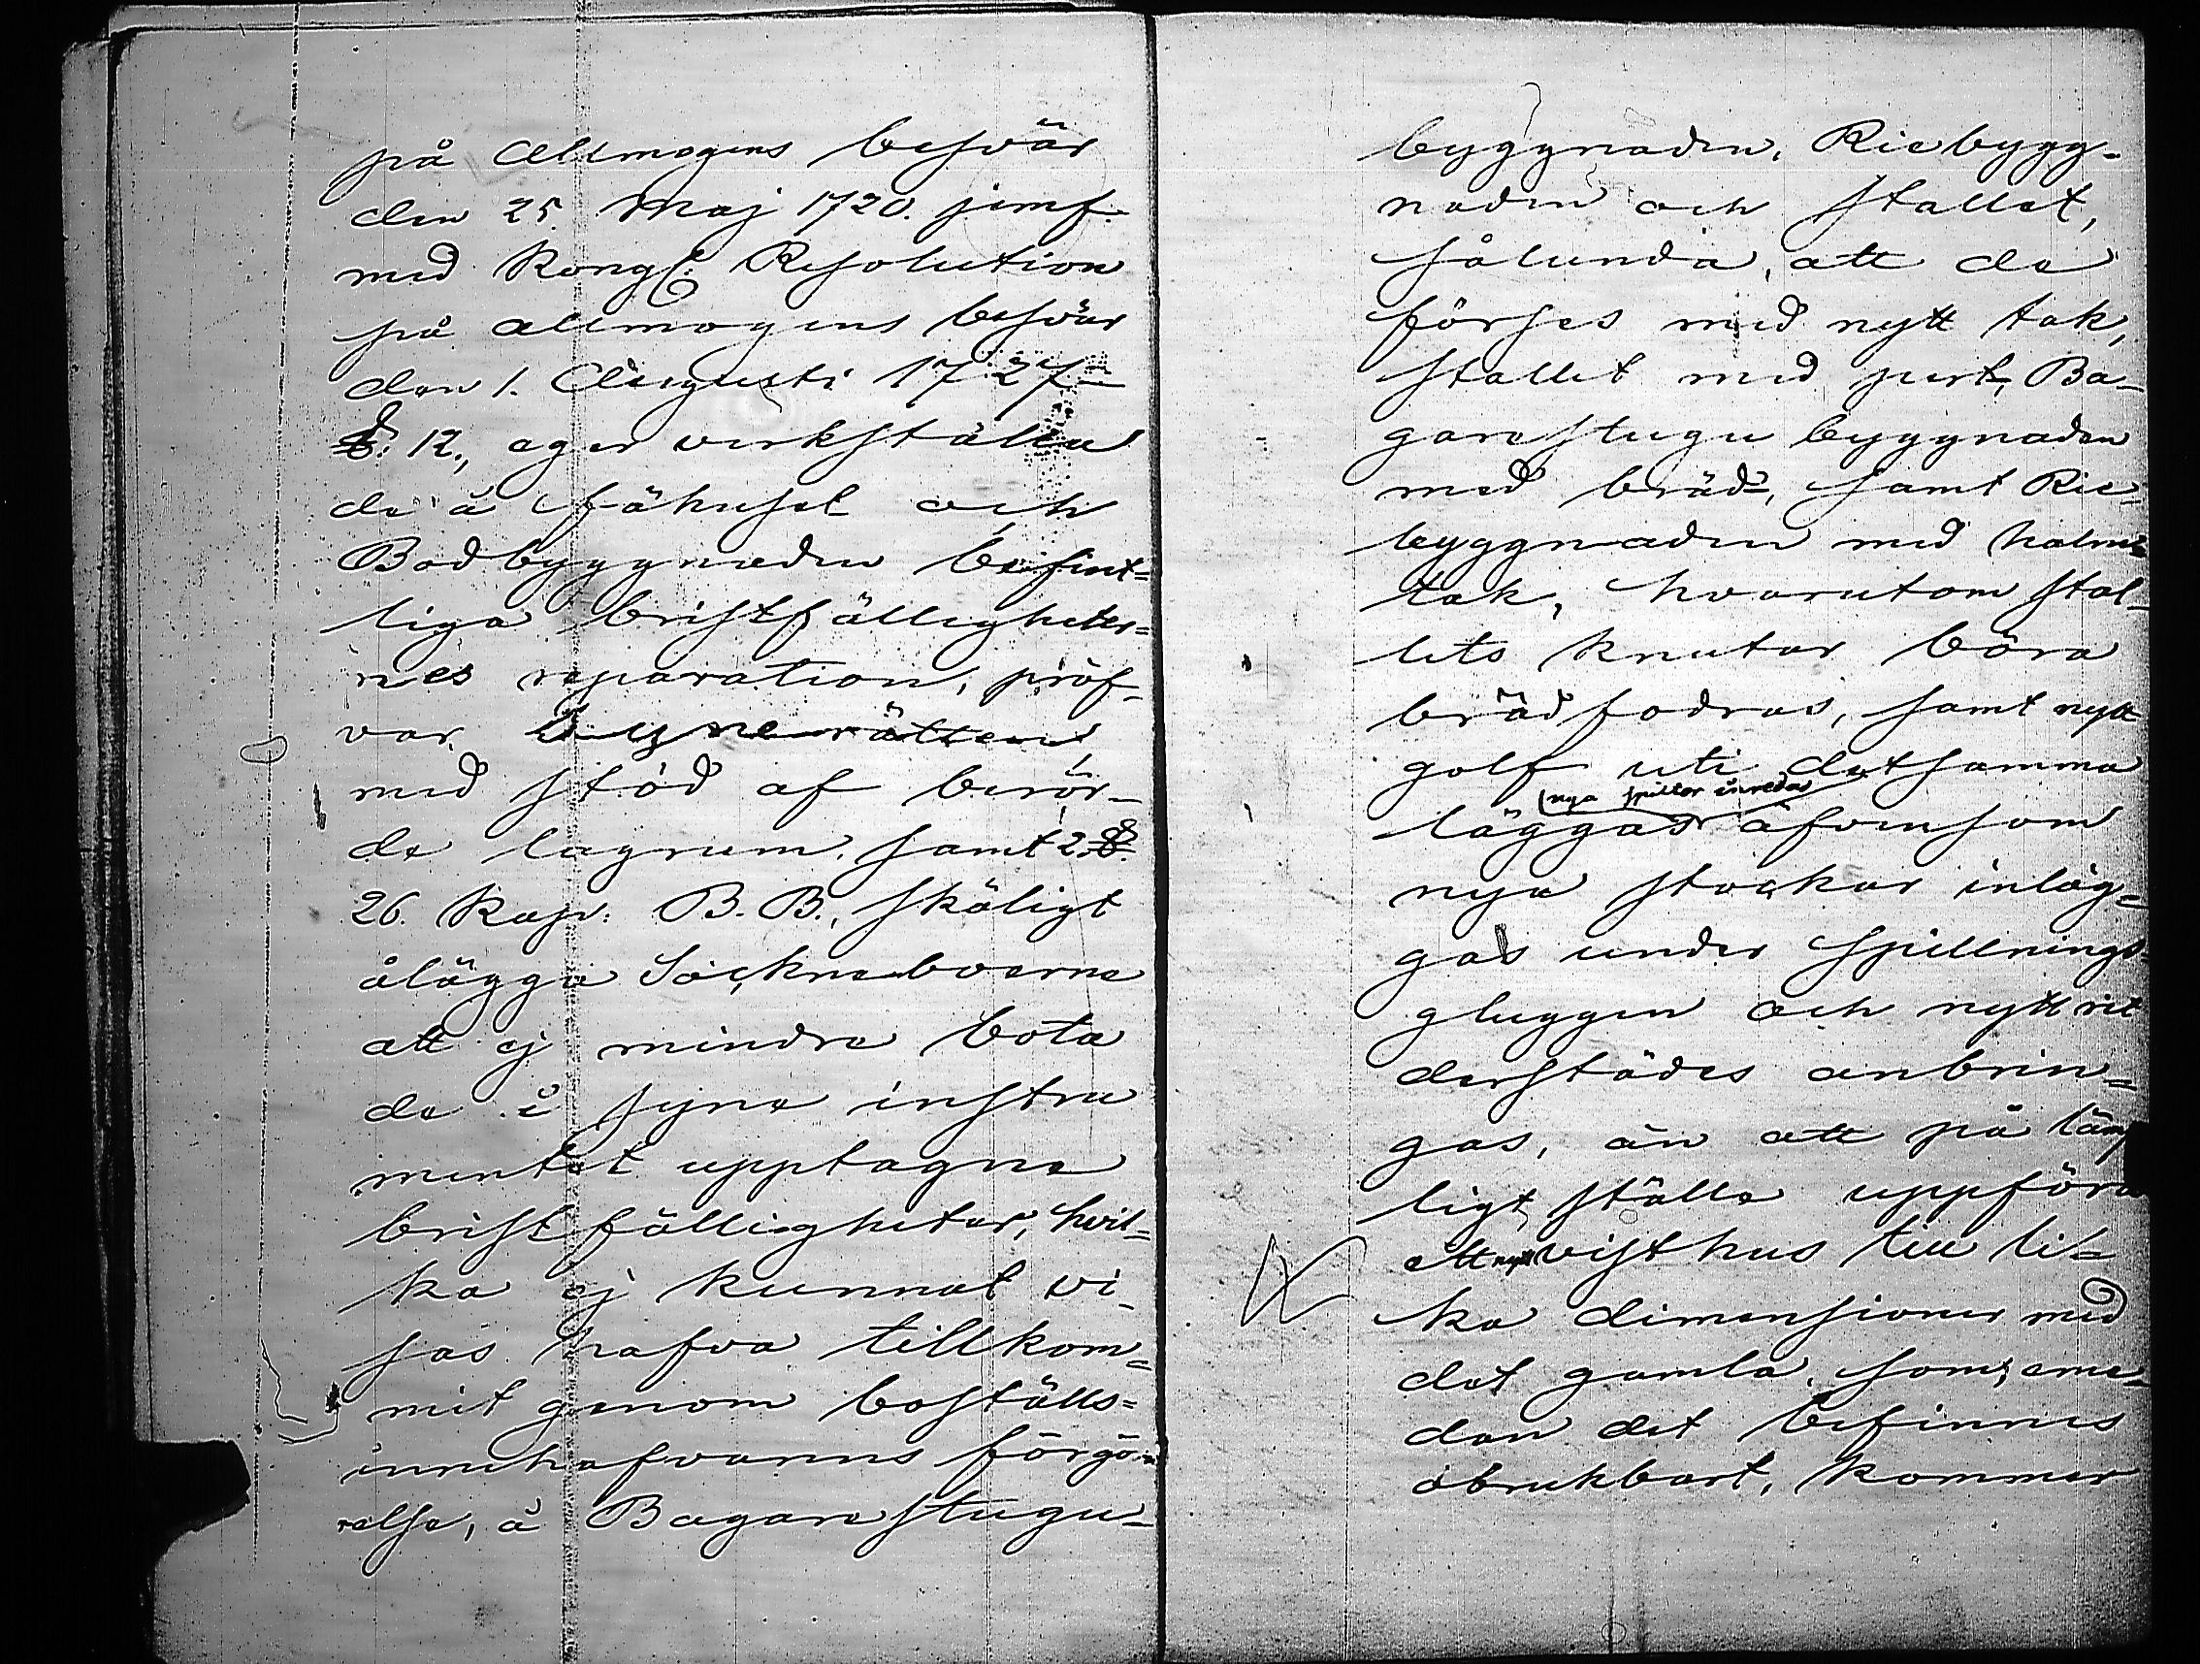 på Allmogens besvär
den 25. Maj 1720. jemf.
med Kongl. Resolution
på allmogens besvär
den 1. Augusti 1727
§. 12., eger verkställan
de å fähuset och
Bodbyggnaden befint-
liga bristfälligheter-
nes reparation, pröf-
var Synerätten
med stöd af berör-
de lagrum, samt 2. §.
26. Kap: B. B., skäligt
ålägga Socknaboerne
att ej mindre bota
de i syne instru
mentet upptagne
bristfälligheter, hvil-
ka ej kunnat vi-
sas hafva tillkom-
mit genom boställs-
innehafvarens förgö-
relse, å Bagarestugu-
byggnaden, Riebygg-
naden och stallet,
sålunda, att de
förses med nytt tak,
stallet med pert, Ba-
garestugu byggnaden
med bräd-, samt Rie-
byggnaden med halm-
tak, hvarutom stal-
lets knutar böra
brädfodras, samt nytt
golf uti detsamma
nya spiltor inredas
läggas äfvensom
nya stockar inläg-
gas under spillnings-
gluggen och nytt
derstädes anbrin-
gas, än att på lämp
ligt ställe uppföra
ett nytt visthus till li-
ka dimensioner med
det gamla, som, eme-
dan det befinnes
obrukbart, kommer